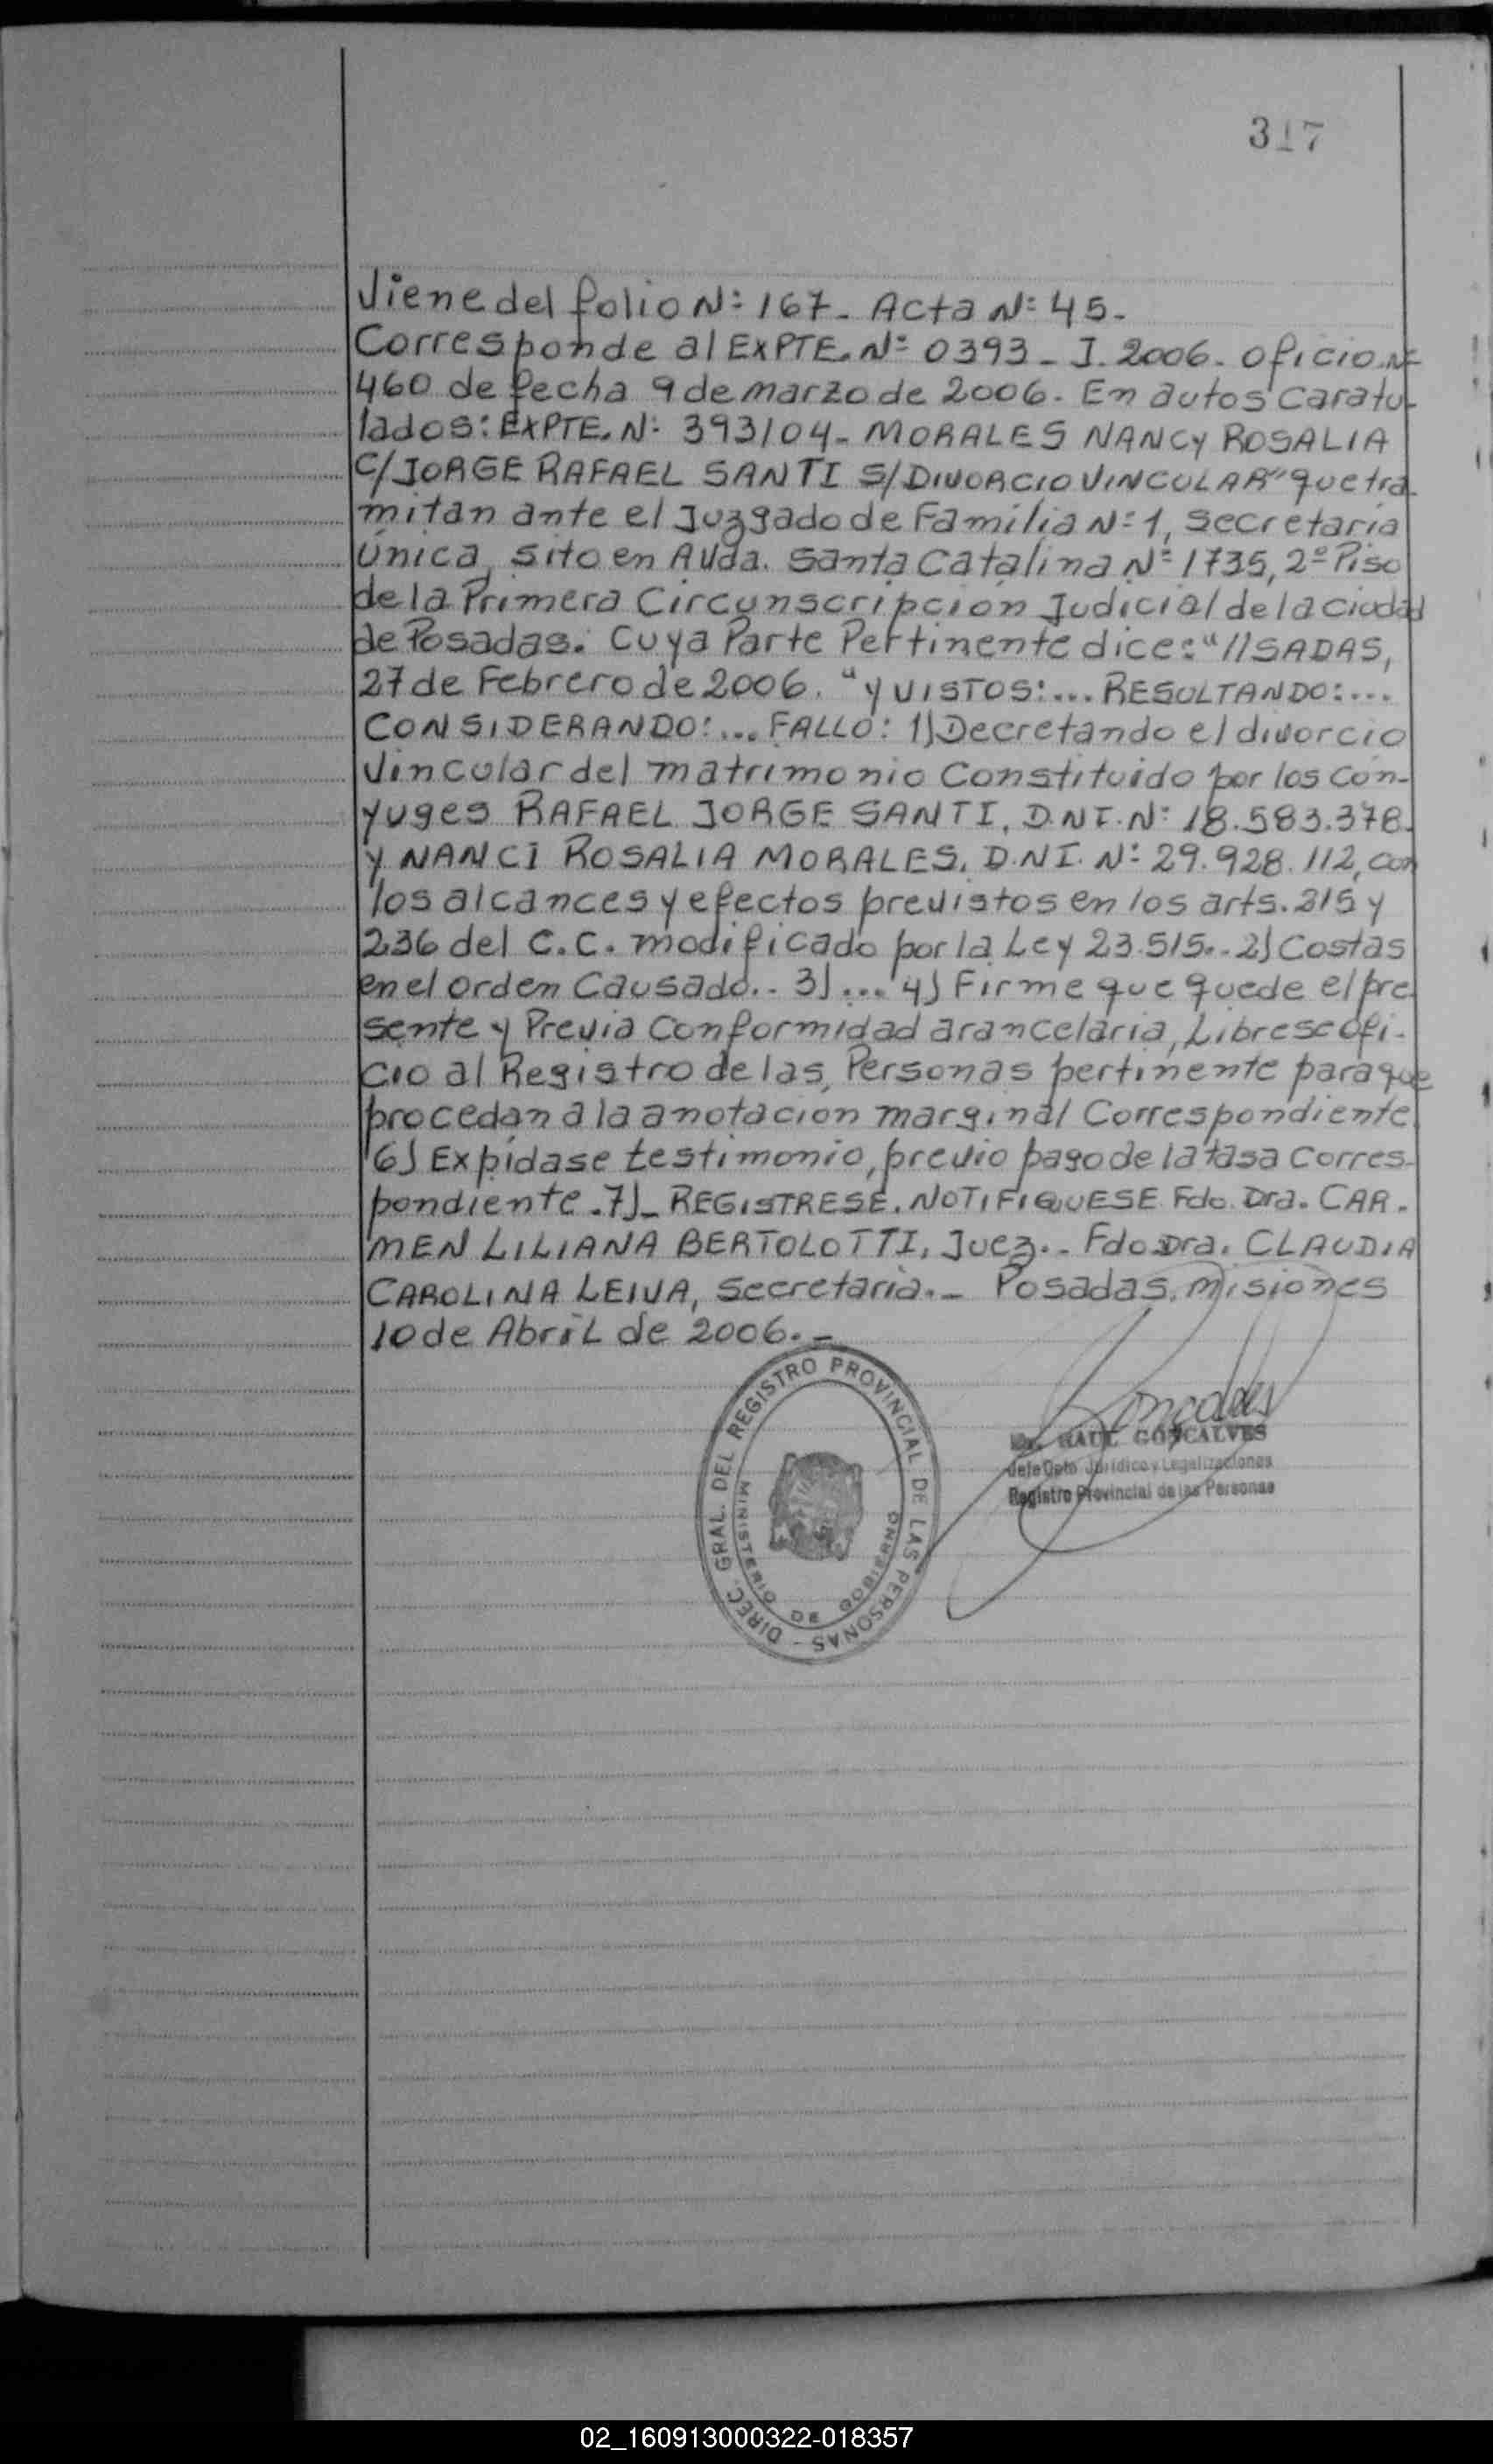 317
Viene del folio N: 167- Acta N: 45-
Corresponde al EXPTE. N: 0393- J. 2006- oficio N:
460 de fecha 9 de marzo de 2006- En autos caratu-
lados: EXPTE. N: 393/04- MORALES NANCY ROSALIA
C/JORGE RAFAEL SANTI S/DIVORCIO VINCULAR" que tra-
mitan ante el Juzgado de Familia N: 1, secretaría
Única, sito en Avda. Santa Catalina N: 1735, 2º Piso
de la Primera Circunscripción Judicial de la ciudad
de Posadas. Cuya Parte Pertinente dice: "//SADAS,
27 de Febrero de 2006. "Y VISTOS:... RESULTANDO:...
CONSIDERANDO:... FALLO: 1) Decretando el divorcio
Vincular del matrimonio Constituido por los Cón-
yuges RAFAEL JORGE SANTI, D.N.I. N: 18.583.378.
Y NANCI ROSALIA MORALES, D.N.I. N: 29.928.112, con
los alcances y efectos previstos en los arts. 215 y
236 del C.C. modificado por la Ley 23.515.-2) Costas
en el orden Causado.- 3)... 4) Firme que quede el pre
sente y Previa Conformidad arancelaria, Librese ofi-
cio al Registro de las Personas pertinente para que
procedan a la anotación marginal Correspondiente.
6) Expídase testimonio, previo pago de la tasa Corres-
pondiente.7)- REGISTRESE. NOTIFIQUESE. Fdo. Dra. CAR-
MEN LILIANA BERTOLOTTI, Juez.- Fdo Dra. CLAUDIA
CAROLINA LEIVA, secretaria.- Posadas, Misiones
10 de Abril de 2006.-
DIREC. GRAL. DEL REGISTRO PROVINCIAL DE LAS PERSONAS -
MINISTERIO DE GOBIERNO
RAUL GONCALVES
Jefe Dpto Jurídico y Legalizaciones
Registro Provincial de las Personas
02_160913000322-018357